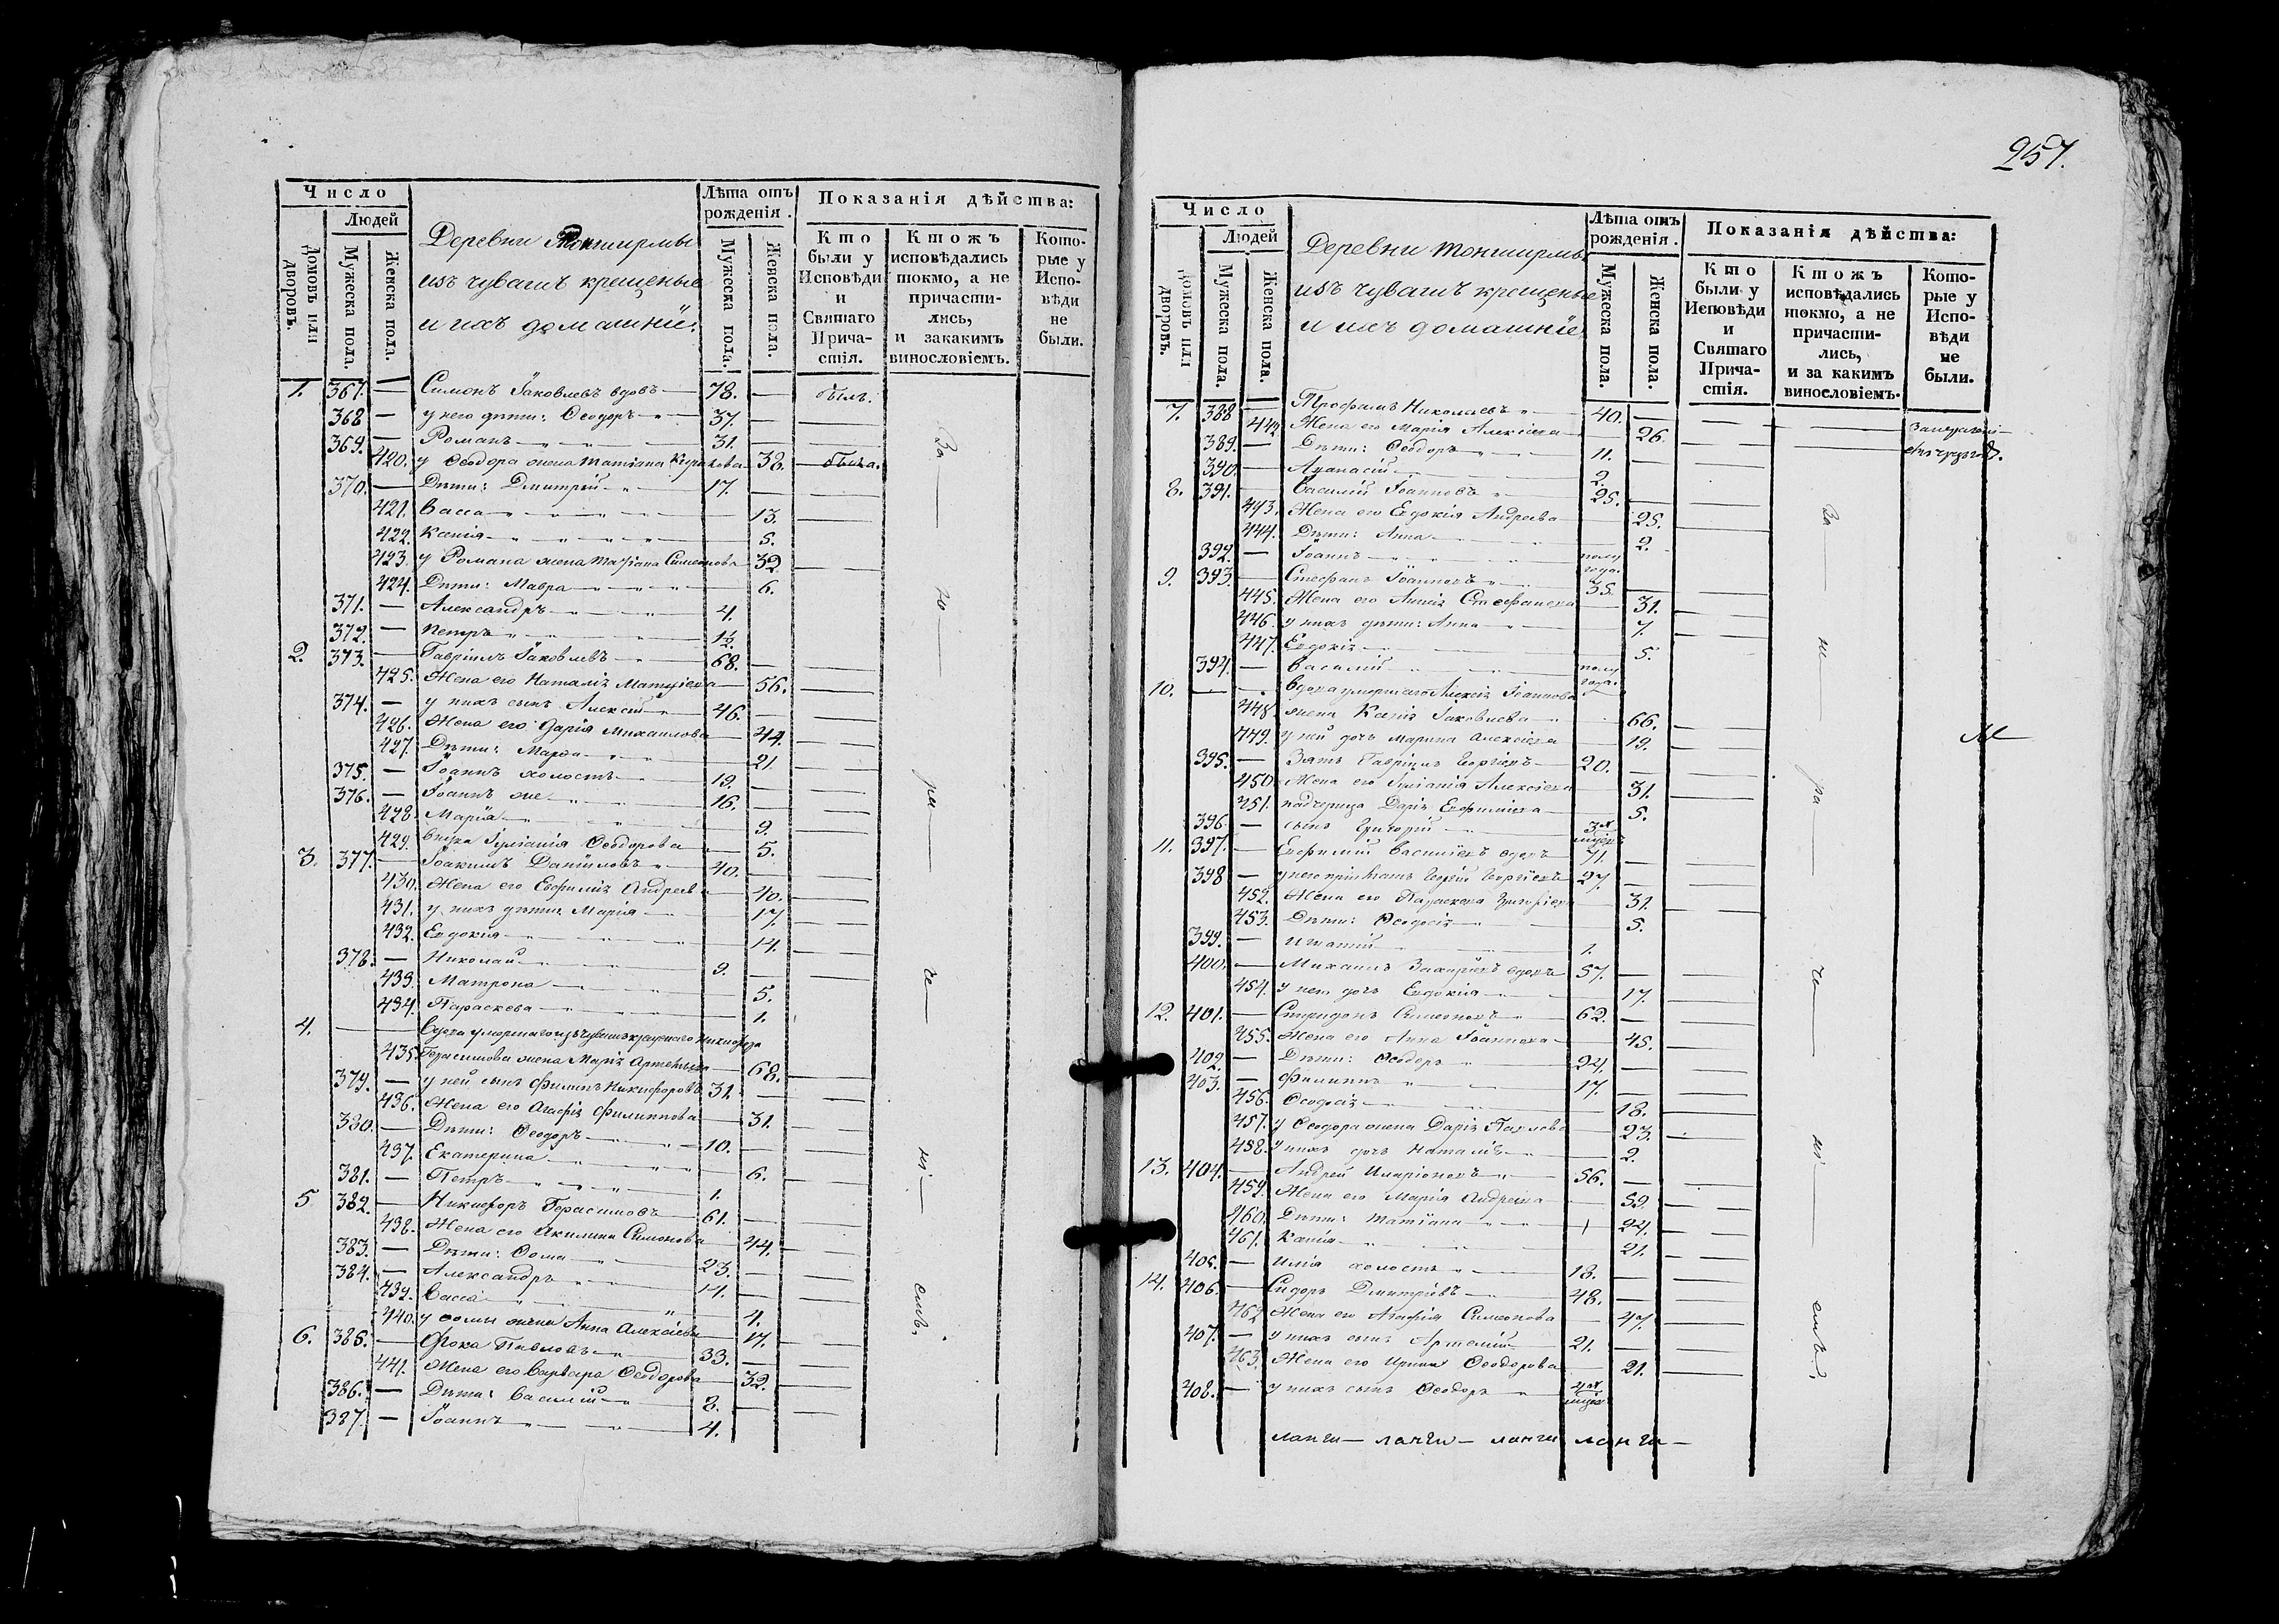 257.
Число
Людей
Домовъ или дворовъ.
Мужеска пола.
Женска пола.
Деревни Тонширмы
изъ чувашъ крещеные
и ихъ домашнїе.
Лѣта отъ рожденія.
Мужеска пола.
Женска пола.
Показанія дѣйства:
Кто были у Исповѣди и Святаго Причастія.
Ктожъ исповѣдались токмо, а не причастились, и закакимъ винословіемъ.
Которые у Исповѣди не были.
1. 367. — Симонъ Іаковлевъ вдовъ — 78. — былъ.
368 — у него дѣти: Ѳеодоръ — 37. —
369. — Романъ — 31. —
420. у Ѳеодора жена Татіана — 38. — была.
370. — Дѣти: Дмитрій — 17. —
421. Васса — 13. —
422. Ксенія — 5.
423. у Романа жена Татіана Симеонова 32 —
424. Дѣти: Мавра — 6.
371. — Александръ — 4.
372. — Петръ — 1½.
2. 373. — Гавріилъ Іаковлевъ — 68. —
425. Жена его Наталія Матѳіева — 56. —
374. — у нихъ сынъ Алексій — 46. —
426. Жена его Дарія Михаилова — 44. —
427. Дѣти: Марѳа — 21 —
375. — Іоаннъ холостъ — 19. —
376. — Іоаннъ же — 16. —
428. Марія — 9. —
429. внука Іуліанія Ѳеодорова — 5.
3. 377. — Іоакимъ Даніиловъ — 40. —
430. Жена его Евфимія Андреева — 40. —
431. у нихъ дѣти: Марія — 17. —
432. Евдокія — 14. —
378. — Николай — 9. —
433. Матрона — 5.
434. Параскева — 1.
4. — Вдова умершаго изъ чувашъ крещенаго Никифора
435. Герасимова жена Марія Артемьева — 68. —
379. — у ней сынъ Филиппъ Никифоровъ 31. —
436. Жена его Агафія Филиппова — 31. —
380. — Дѣти: Ѳеодоръ — 10. —
437. Екатерина — 6. —
381. — Петръ — 1.
5 382. — Никифоръ Герасимовъ — 61. —
438. Жена его Акилина Симонова — 44. —
383. — Дѣти: Ѳома — 23. —
384. — Александръ — 14. —
439. Васса — 4.
440. у Ѳомы жена Анна Алексіева — 17. —
6. 385. — Фока Павловъ — 33. —
441. Жена его Варвара Ѳеодорова — 32. —
386. — Дѣти: Василій — 8. —
387. — Іоаннъ — 4.
За — то — ре — че — ні — емъ.
Число
Людей
Домовъ или дворовъ.
Мужеска пола.
Женска пола.
Деревни Тонширмы
изъ чувашъ крещеные
и ихъ домашнїе
Лѣта отъ рожденія.
Мужеска пола.
Женска пола.
Показанія дѣйства:
Кто были у Исповѣди и Святаго Причастія.
Ктожъ исповѣдались токмо, а не причастились, и за какимъ винословіемъ.
Которые у Исповѣди не были.
7. 388 — Трофимъ Николаевъ — 40. —
442 Жена его Марія Алексіева — 26. —
389. — Дѣти: Ѳеодоръ — 11. —
390. — Аѳанасій — 2.
8. 391. — Василій Іоанновъ — 25. —
443. Жена его Евдокія Андреева — 25. —
444. Дѣти: Анна — 2.
392. — Іоаннъ — полу года.
9. 393. — Стефанъ Іоанновъ — 35. —
445. Жена его Анна Стефанова — 31. —
446. у нихъ дѣти: Анна — 7. —
447. Евдокія — 5.
394. — Василій — полу года.
10. — Вдова умершаго Алексія Іоаннова
448. жена Ксенія Іаковлева — 66. —
449. у ней дочь Марина Алексіева — 19. —
395. — Зять Гавріилъ Георгіевъ — 20. —
450. Жена его Іуліанія Алексіева — 31. —
451. падчерица Дарія Евфиміева — 5.
396. — сынъ Григорій — 3х мцовъ
11. 397. — Евфимій Василіевъ вдовъ — 71. —
398 — у него пріемышъ Георгій Георгіевъ 27. —
452. Жена его Параскева Григоріева — 31. —
453. Дѣти: Ѳеодосія — 5.
399. — Игнатій — 1.
400. — Михаилъ Захаріевъ вдовъ — 57. —
454. у него дочь Евдокія — 17. —
12. 401. — Спиридонъ Симеоновъ — 62. —
455. Жена его Анна Іоаннова — 45. —
402. — Дѣти: Ѳеодоръ — 24. —
403. — Филиппъ — 17. —
456. Ѳеодосія — 18. —
457. у Ѳеодора жена Дарія Павлова — 23. —
458. у нихъ дочь Наталія — 2.
13. 404. — Андрей Иларіоновъ — 56. —
459. Жена его Марія Андреева — 59. —
460. Дѣти: Татіана — 24. —
461. Ксенія — 21. —
405. — Илія холостъ — 18. —
14. 406. — Сидоръ Дмитріевъ — 48. —
462 Жена его Агафія Симеонова — 47. —
407. — у нихъ сынъ Артемій — 21. —
463. Жена его Ирина Ѳеодорова — 21. —
408. — у нихъ сынъ Ѳеодоръ — 4х мцовъ
За — не — ра — че — ні — емъ.